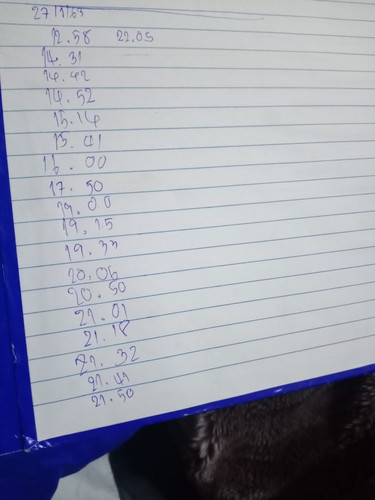 27/1/63
12.58 22.05
14.31
14.42
14.52
15.14
15.41
17.50
19.00
19.15
19.33
20.06
20.50
21.01
21.18
21.32
21.41
21.50